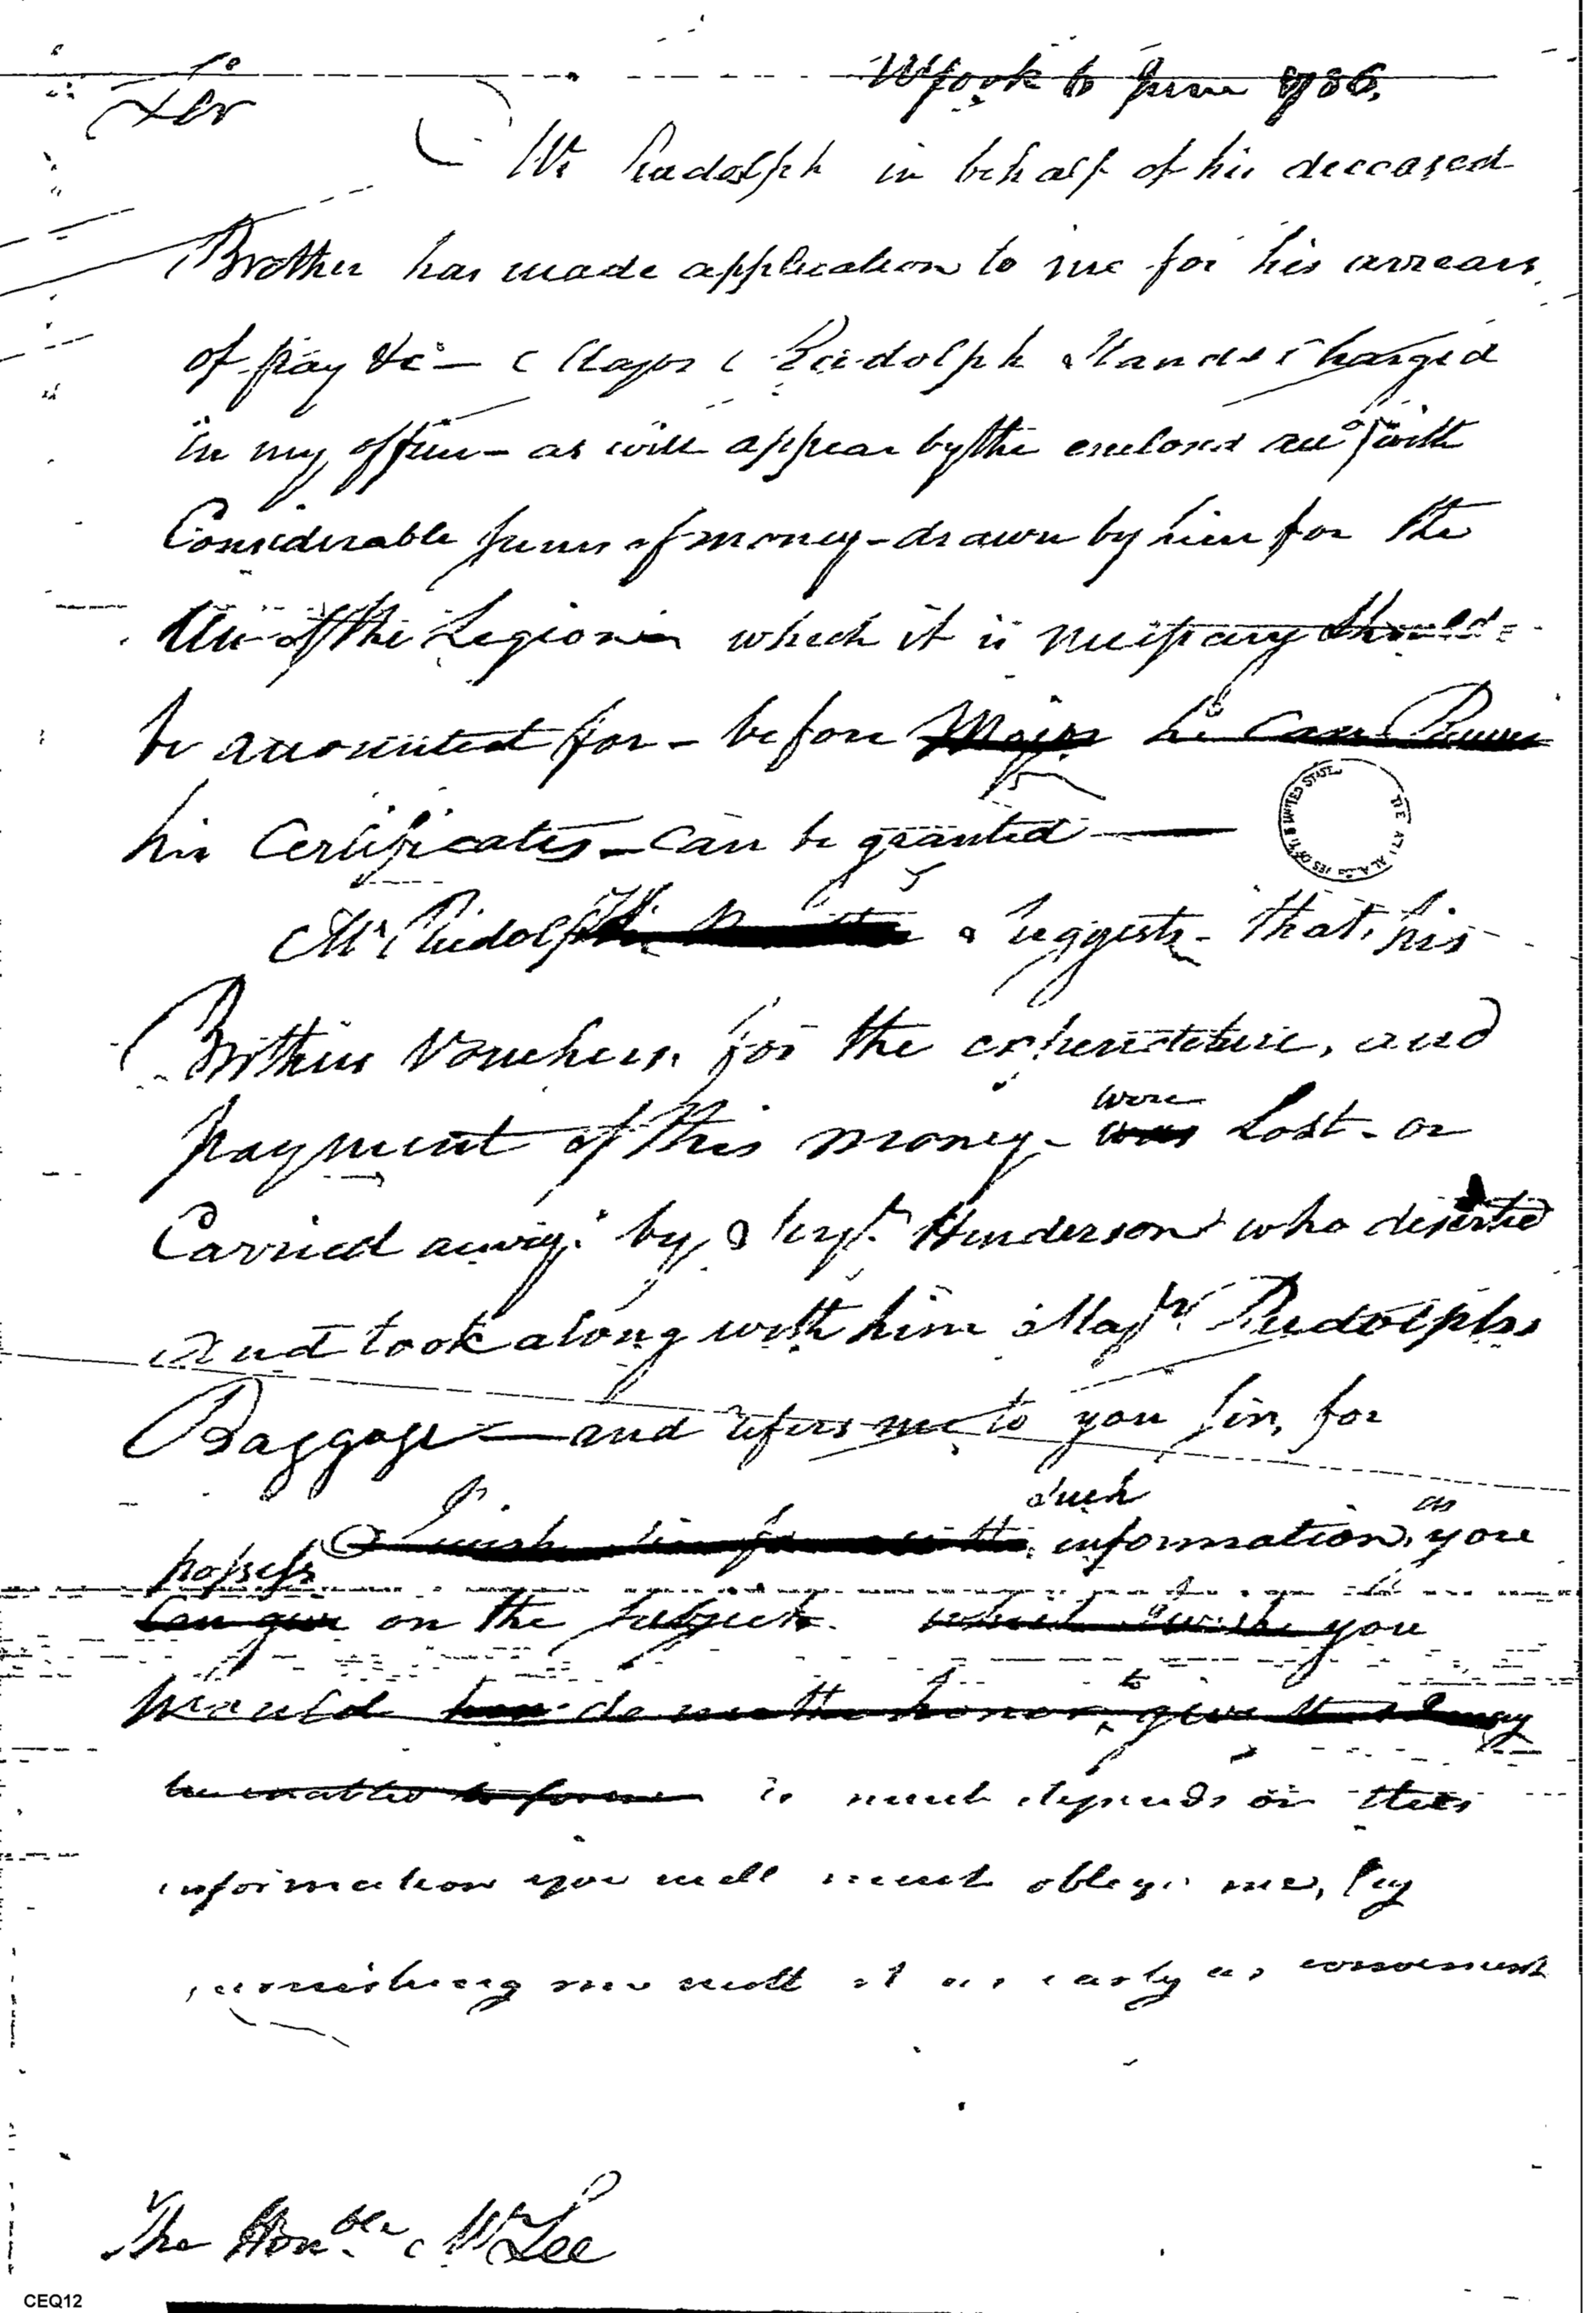 NYork 6 June 1786.
Sir
Mr Rudolph in behalf of his deceased
Brother has made application to me for his arrears
of pay &c — Major Rudolph Stands charged
in my office - as will appear by the enclosed acct with
Considerable sums of money - drawn by him for the
Use of the Legion which it is necessary should
be accounted for - before Major he can Receive
his Certificates - can be granted —
Mr Rudolph Suggests - that his
Brothers Vouchers, for the expenditure, and
were
payment of this money - was Lost - or
Carried away by Serjt. Henderson who deserted
and took along with him Majr. Rudolphs
Baggage — and refers me to you Sir, for
such as
I wish information, you
possess
Can give on the Subject. which I wish you
to
would do me the honor, give it I may
be enabled to form as much depends on this
information you will much oblige me, by
furnishing me with it as early as convenient
The Honble. Mr Lee
UNITED STATE
CEQ12